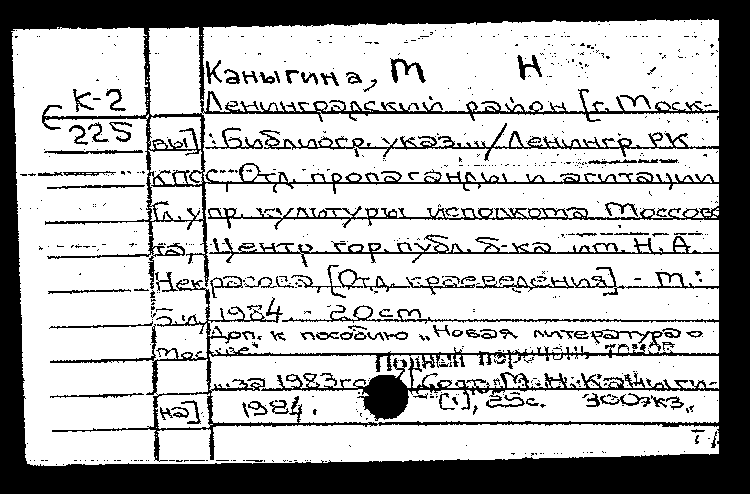 Каныгина, М Н
К-2
Ленинградский район [г. Моск-
С
225
вы] : Библиогр. указ.... / Ленингр. РК
КПСС, Отд. пропаганды и агитации
Гл. упр. культуры исполкома Моссове
та, Центр. гор. публ. б-ка им. Н. А.
Некрасова, [Отд. краеведения] - М.:
Б.и, 1984. - 20 см.
Доп. к пособию „Новая литература о
Москве"
Полный перечень томов
„за 1983го / [Сост. М. Н. Каныги-
на] 1984. [1], 25с. 300экз.